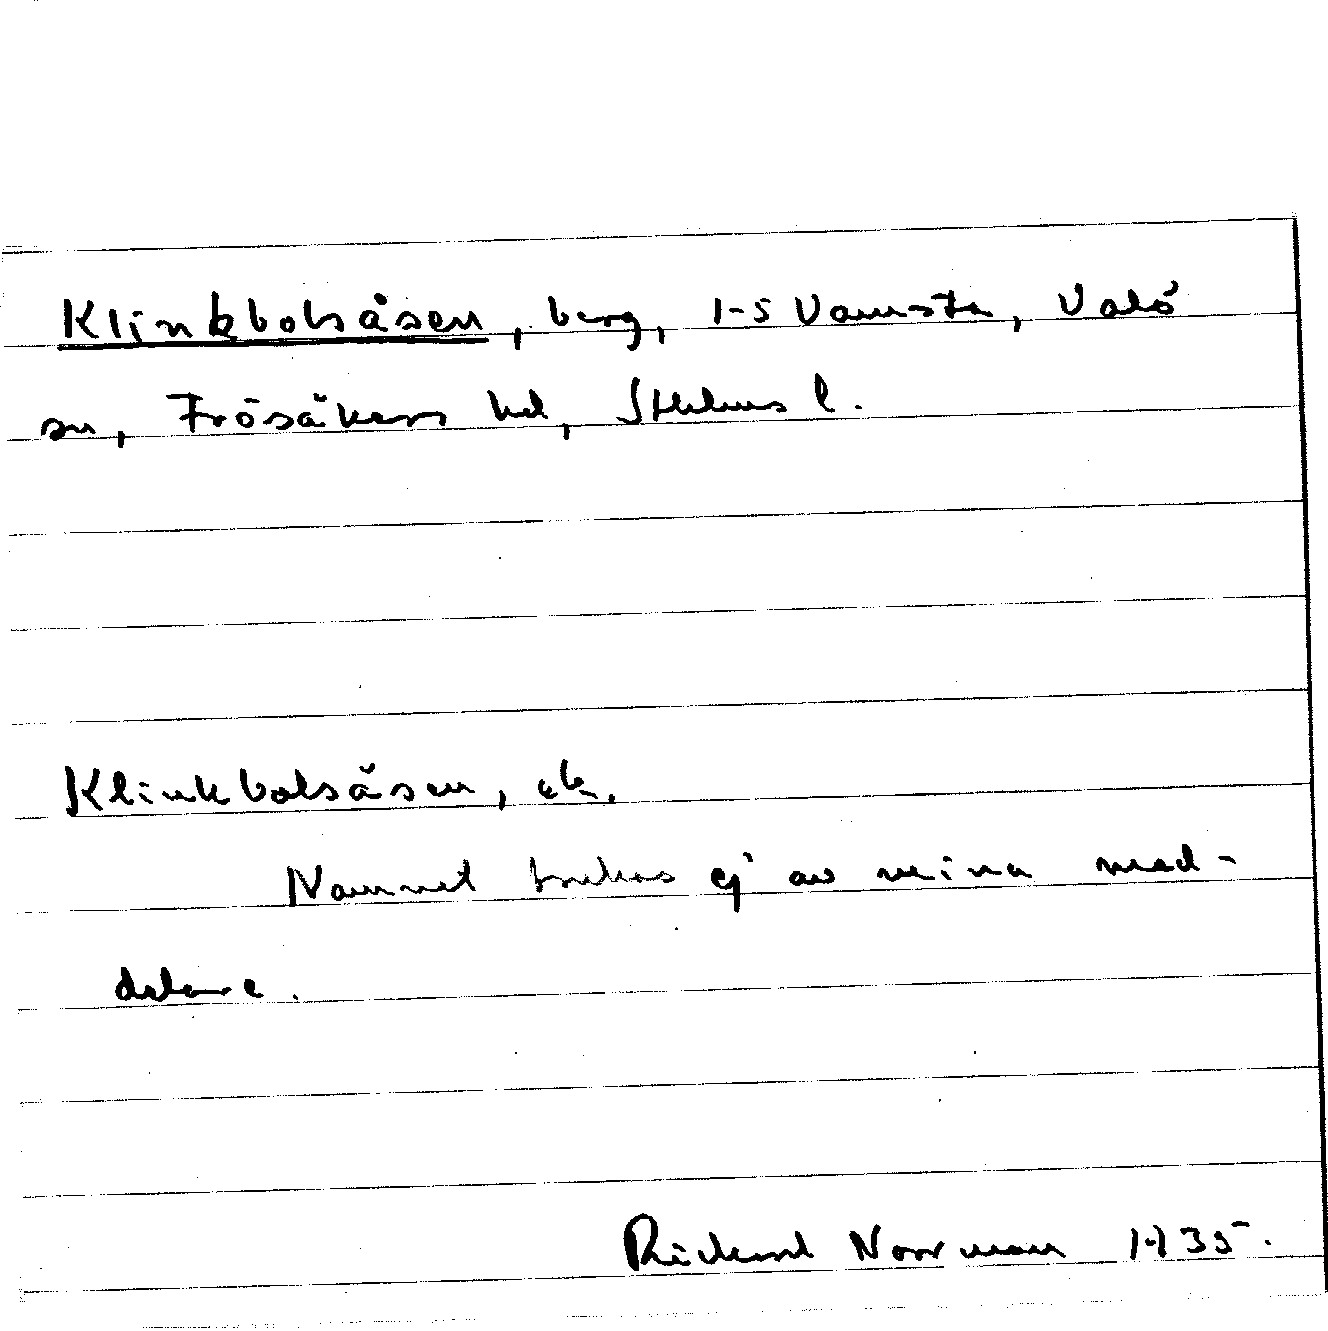 Klinkbolsåsen, berg, 1-5 Vamsta, Valö
sn, Frösåkers hd, Sthlms l.
Klinkbolsåsen, ek.
Namnet brukas ej av mina med-
delare.
Rickard Norrman 1935.